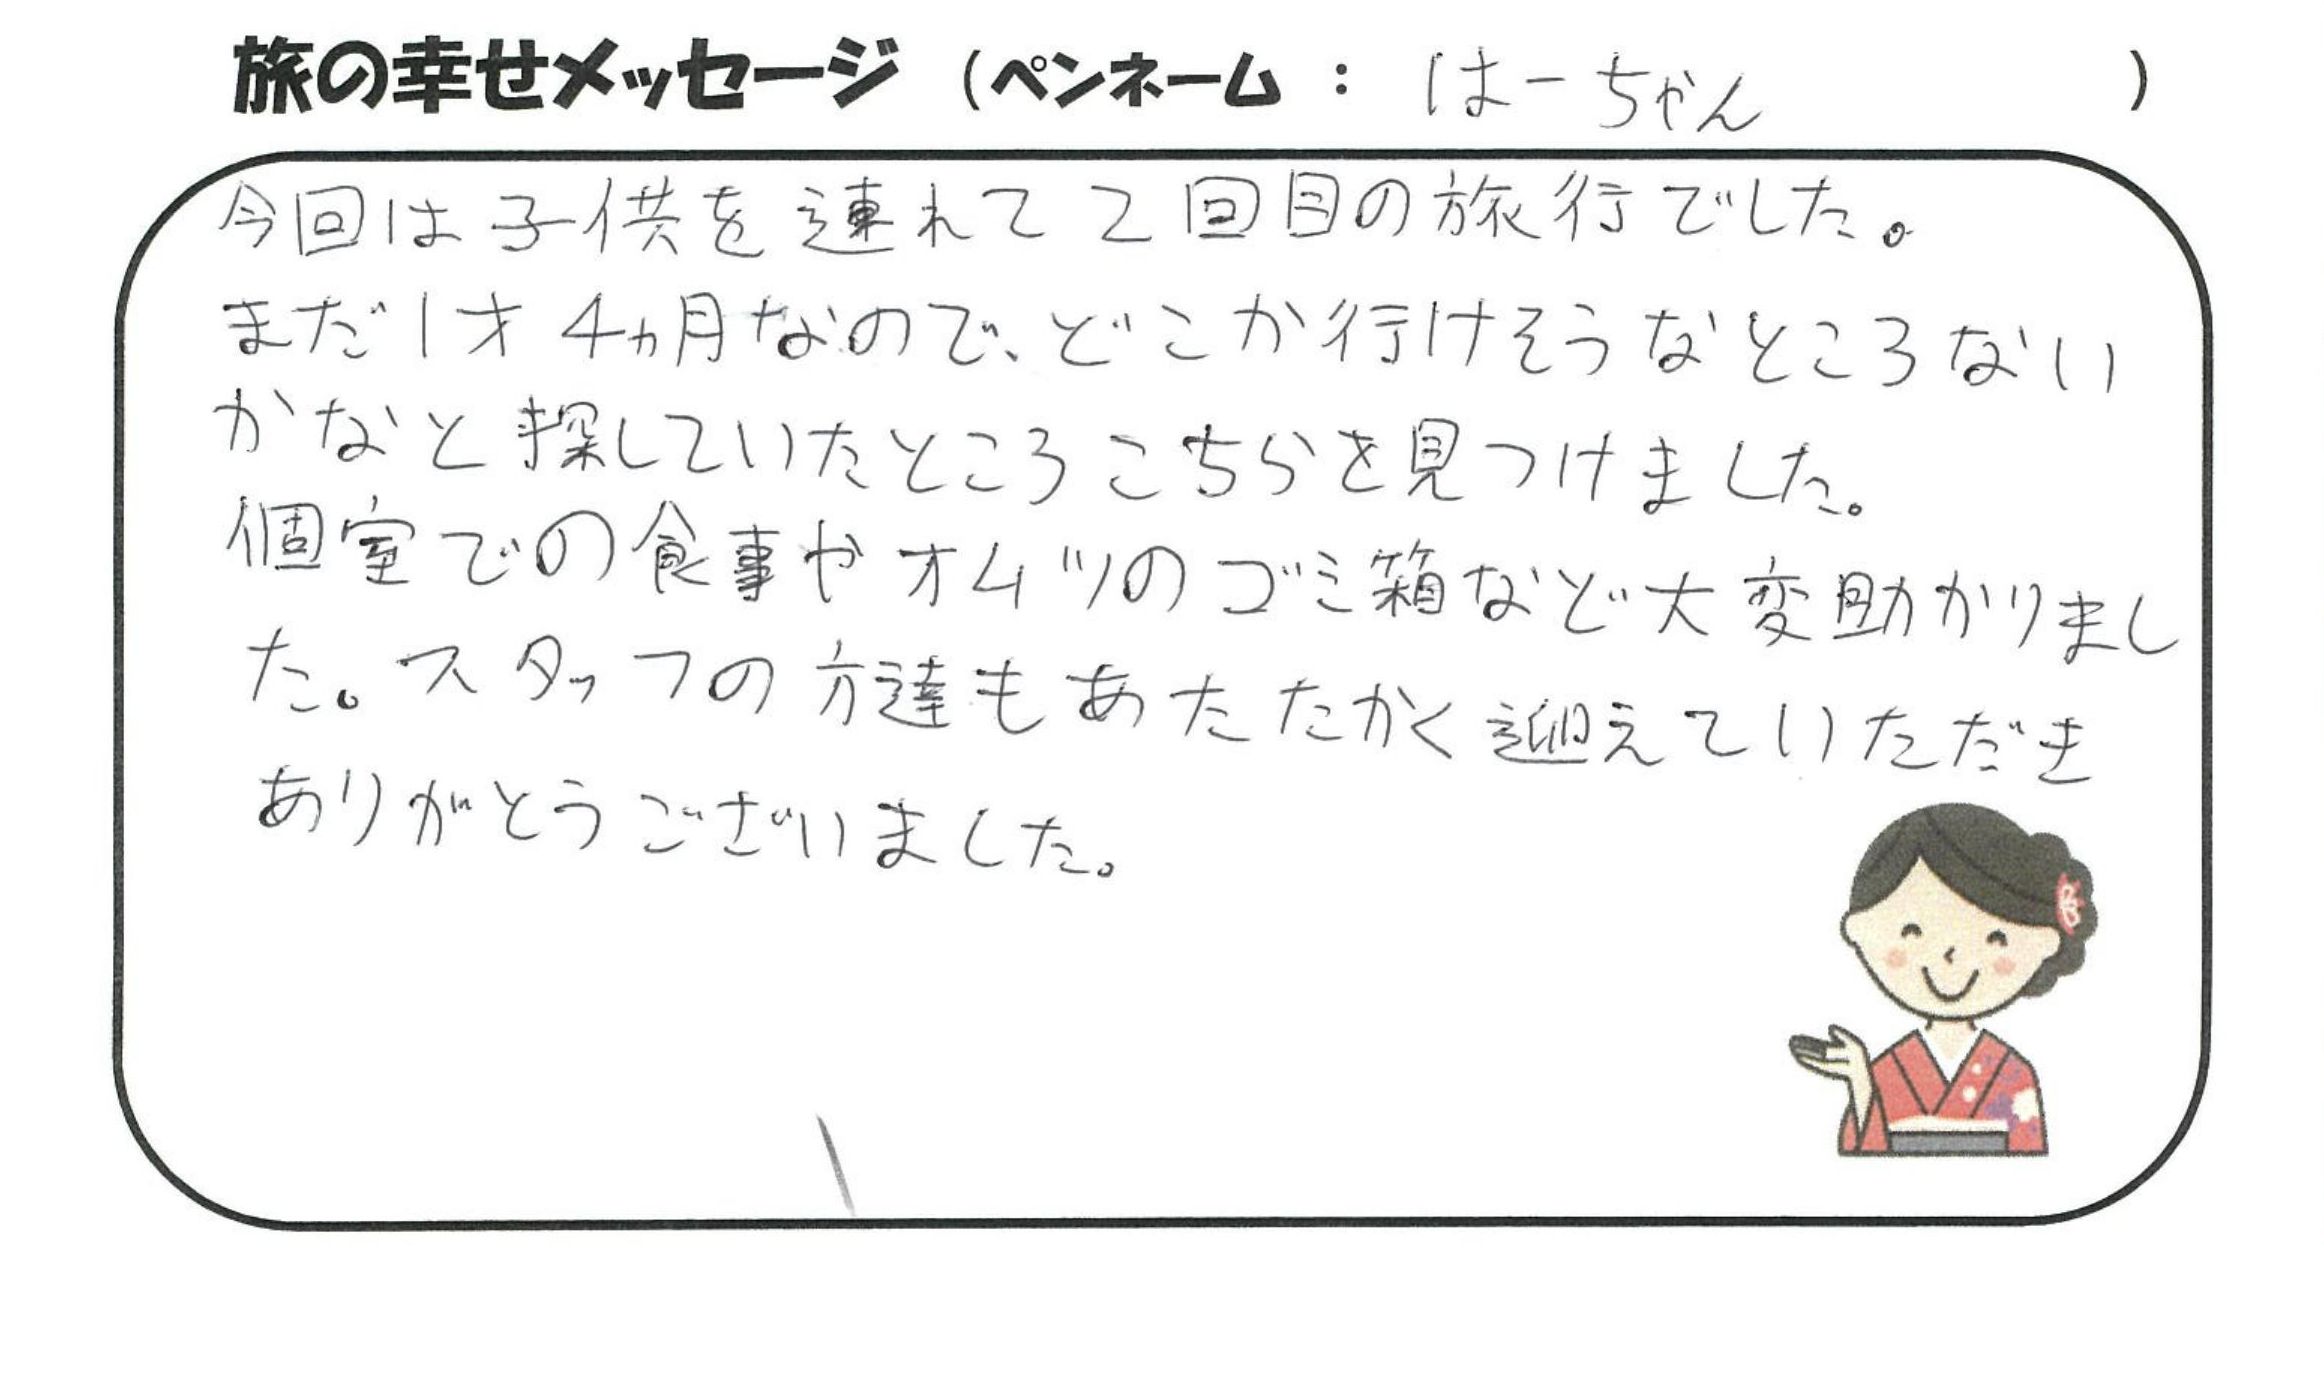 旅の幸せメッセージ (ペンネーム : はーちゃん )
今回は子供を連れて2回目の旅行でした。
まだ1才4ヵ月なので、どこか行けそうなところない
かなと探していたところこちらを見つけました。
個室での食事やオムツのゴミ箱など大変助かりまし
た。スタッフの方達もあたたかく迎えていただき
ありがとうございました。